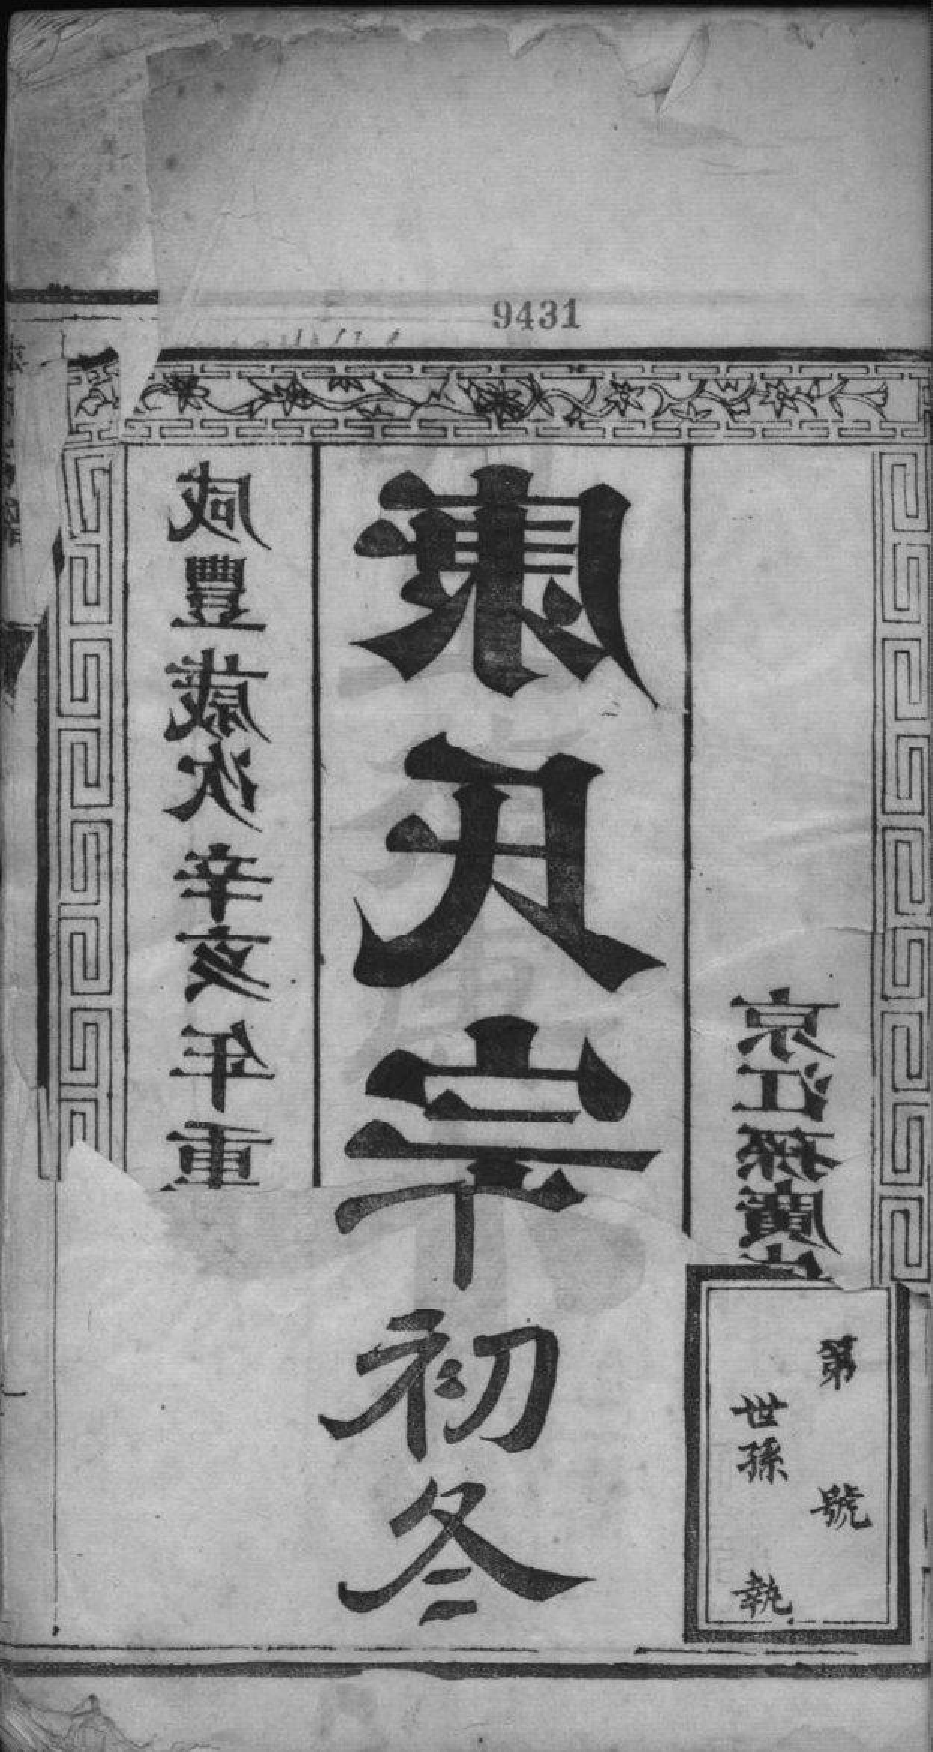 9431
京江孫廣
氏宗
初冬
咸豐歲次辛亥年重
第 號
世孫 執